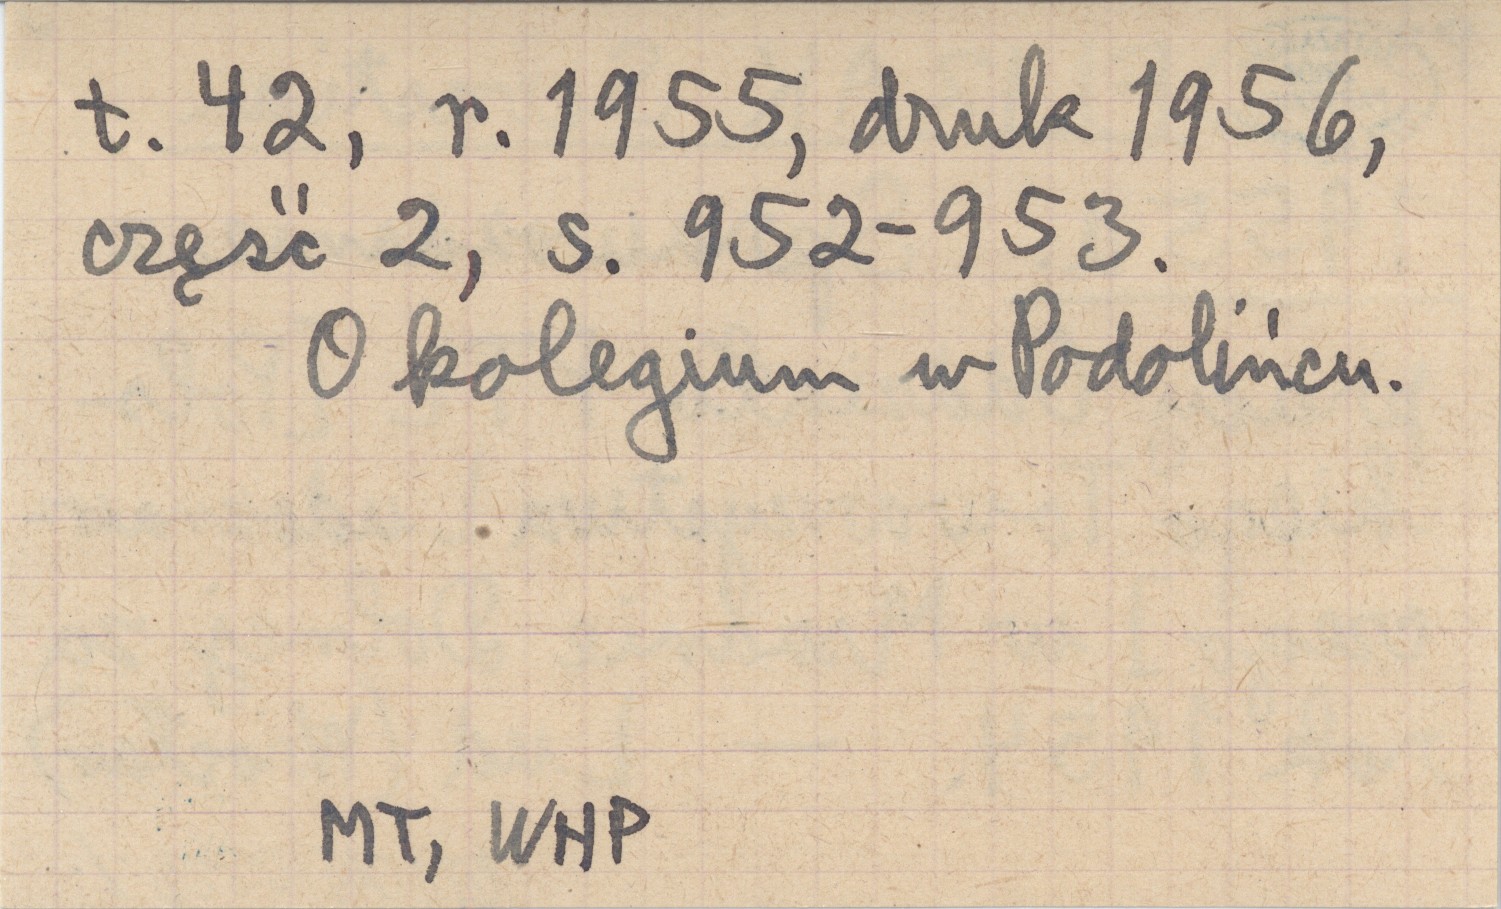 t. 42, r. 1955, druk 1956,
część 2, s. 952-953.
O kolegium w Podolińcu.
MT, WHP